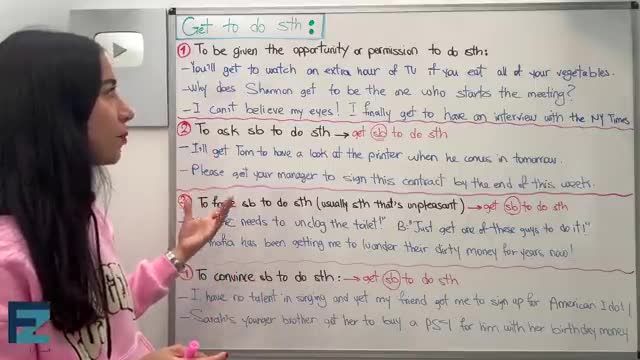 Get to do sth:
① To be given the opportunity or permission to do sth:
- You'll get to watch an extra hour of TV if you eat all of your vegetables.
- Why does Shannon get to be the one who starts the meeting?
- I can't believe my eyes! I finally get to have an interview with the NY Times
② To ask sb to do sth → get sb to do sth
- I'll get Tom to have a look at the printer when he comes in tomorrow.
- Please get your manager to sign this contract by the end of this week.
③ To force sb to do sth (usually sth that's unpleasant) → get sb to do sth
needs to unclog the toilet!" B: "Just get one of these guys to do it!"
mafia has been getting me to launder their dirty money for years now!
④ To convince sb to do sth: → get sb to do sth
- I have no talent in singing and yet my friend got me to sign up for American Idol!
- Sarah's younger brother got her to buy a PS4 for him with her birthday money
EZ